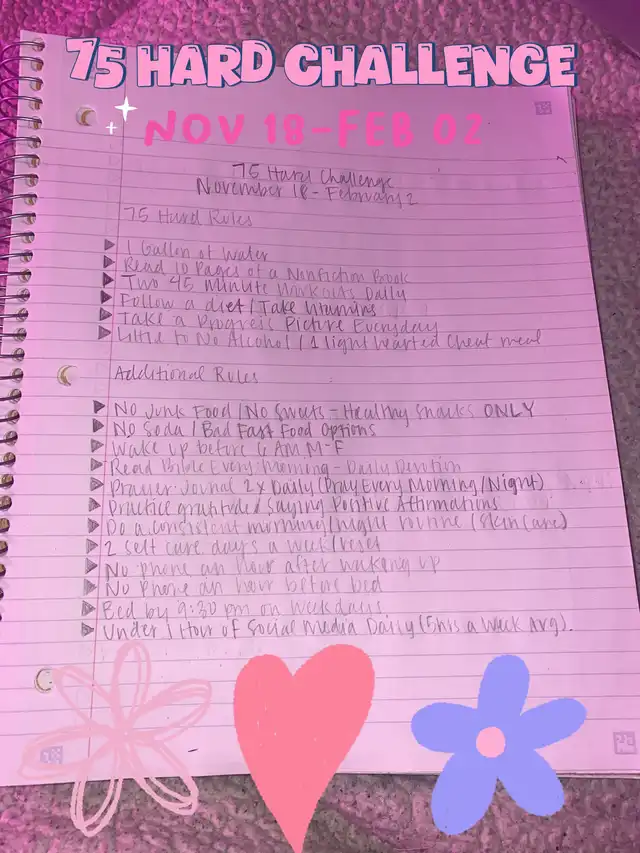 75 HARD CHALLENGE
NOV 18-FEB 02
75 Hard Challenge
November 18 - February 2
75 Hard Rules
1 Gallon of Water
Read 10 Pages of a Nonfiction Book
Two 45 Minute Workouts Daily
Follow a diet / Take Vitamins
Take a Progress Picture Everyday
Little to No Alcohol / 1 light hearted Cheat meal
Additional Rules
No Junk Food / No Sweets - Healthy Snacks ONLY
No Soda / Bad Fast Food Options
Wake up before 6 AM M-F
Read Bible Every Morning - Daily Devotion
Prayer Journal 2x Daily (Pray Every Morning / Night)
Practice gratitude & Saying Positive Affirmations
Do a consistent morning / night routine (Skin Care)
2 self care days a week / reset
No phone an hour after waking up
No Phone an hour before bed
Bed by 9:30 pm on weekdays
Under 1 Hour of Social Media Daily (5hrs a Week Avg).